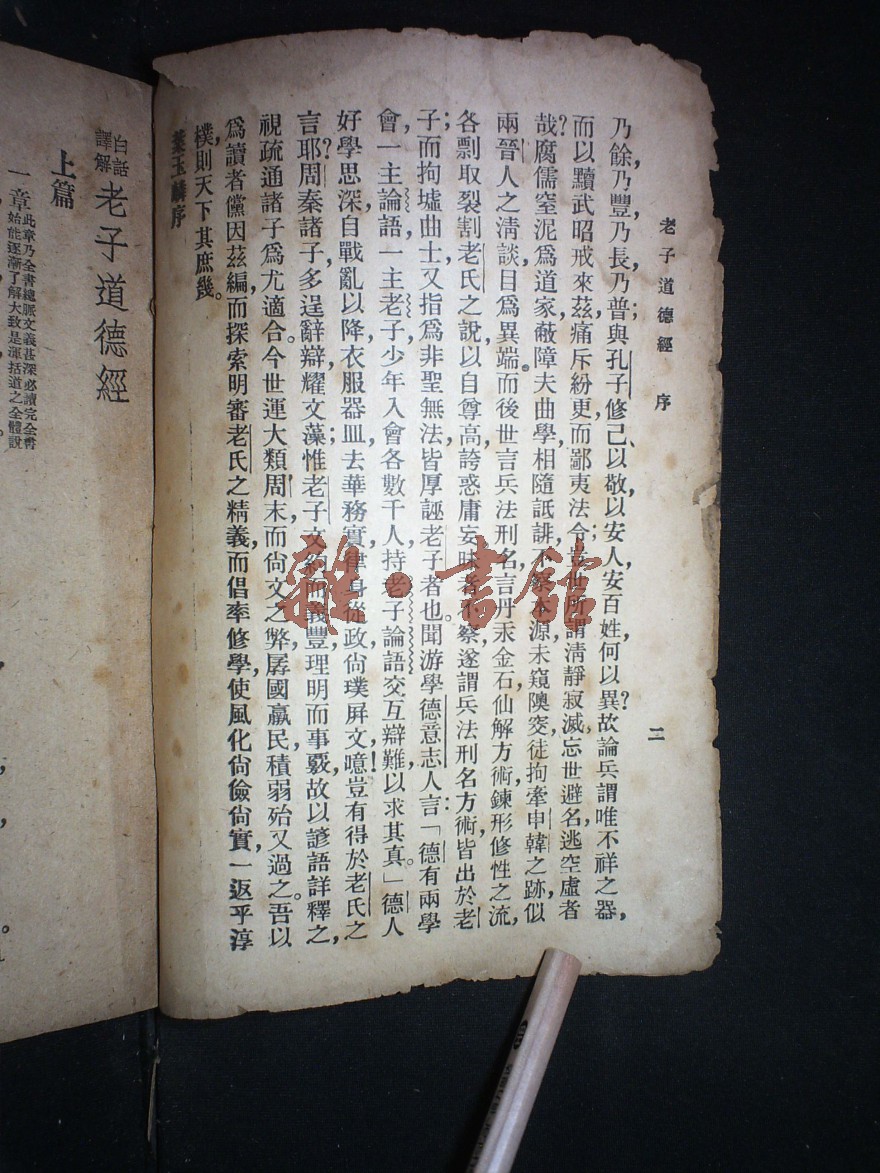 老子道德經 序 二
乃餘，乃豐，乃長，乃普；與孔子修己以敬，以安人，安百姓，何以異？故論兵，謂唯不祥之器，
而以黷武昭戒來茲，痛斥紛更，而鄙夷法令；豈世所謂清靜寂滅，忘世避名，逃空虛者
哉？腐儒窒泥，爲道家蔽障，夫曲學相隨詆誹，不察本源，未窺隩窔，徒拘牽申韓之跡，似
兩晉人之淸談，目爲異端。而後世言兵法刑名，言丹汞金石，仙解方術，鍊形修性之流，
各剽取裂割老氏之說，以自尊高，誇惑庸妄，昧者不察，遂謂兵法刑名方術，皆出於老
子；而拘墟曲士，又指爲非聖無法，皆厚誣老子者也。聞游學德意志人言：「德有兩學
會，一主論語，一主老子，少年入會各數千人，持老子論語，交互辯難，以求其真。」德人
好學思深，自戰亂以降，衣服器皿，去華務實，律身從政，尙璞屏文，噫！豈有得於老氏之
言耶？周秦諸子，多逞辭辯，耀文藻；惟老子文約而義豐，理明而事覈，故以諺語詳釋之，
視疏通諸子爲尤適合。今世運大類周末，而尙文之弊，孱國羸民，積弱殆又過之。吾以
爲讀者儻因茲編，而探索明審老氏之精義，而倡率修學，使風化尙儉尙實，一返乎淳
樸，則天下其庶幾。
葉玉麟序
白話譯解 老子道德經
上篇
一章 此章乃全書總脈文義甚深必讀完全書始能逐漸了解大致是渾括道之全體說
雜·書館